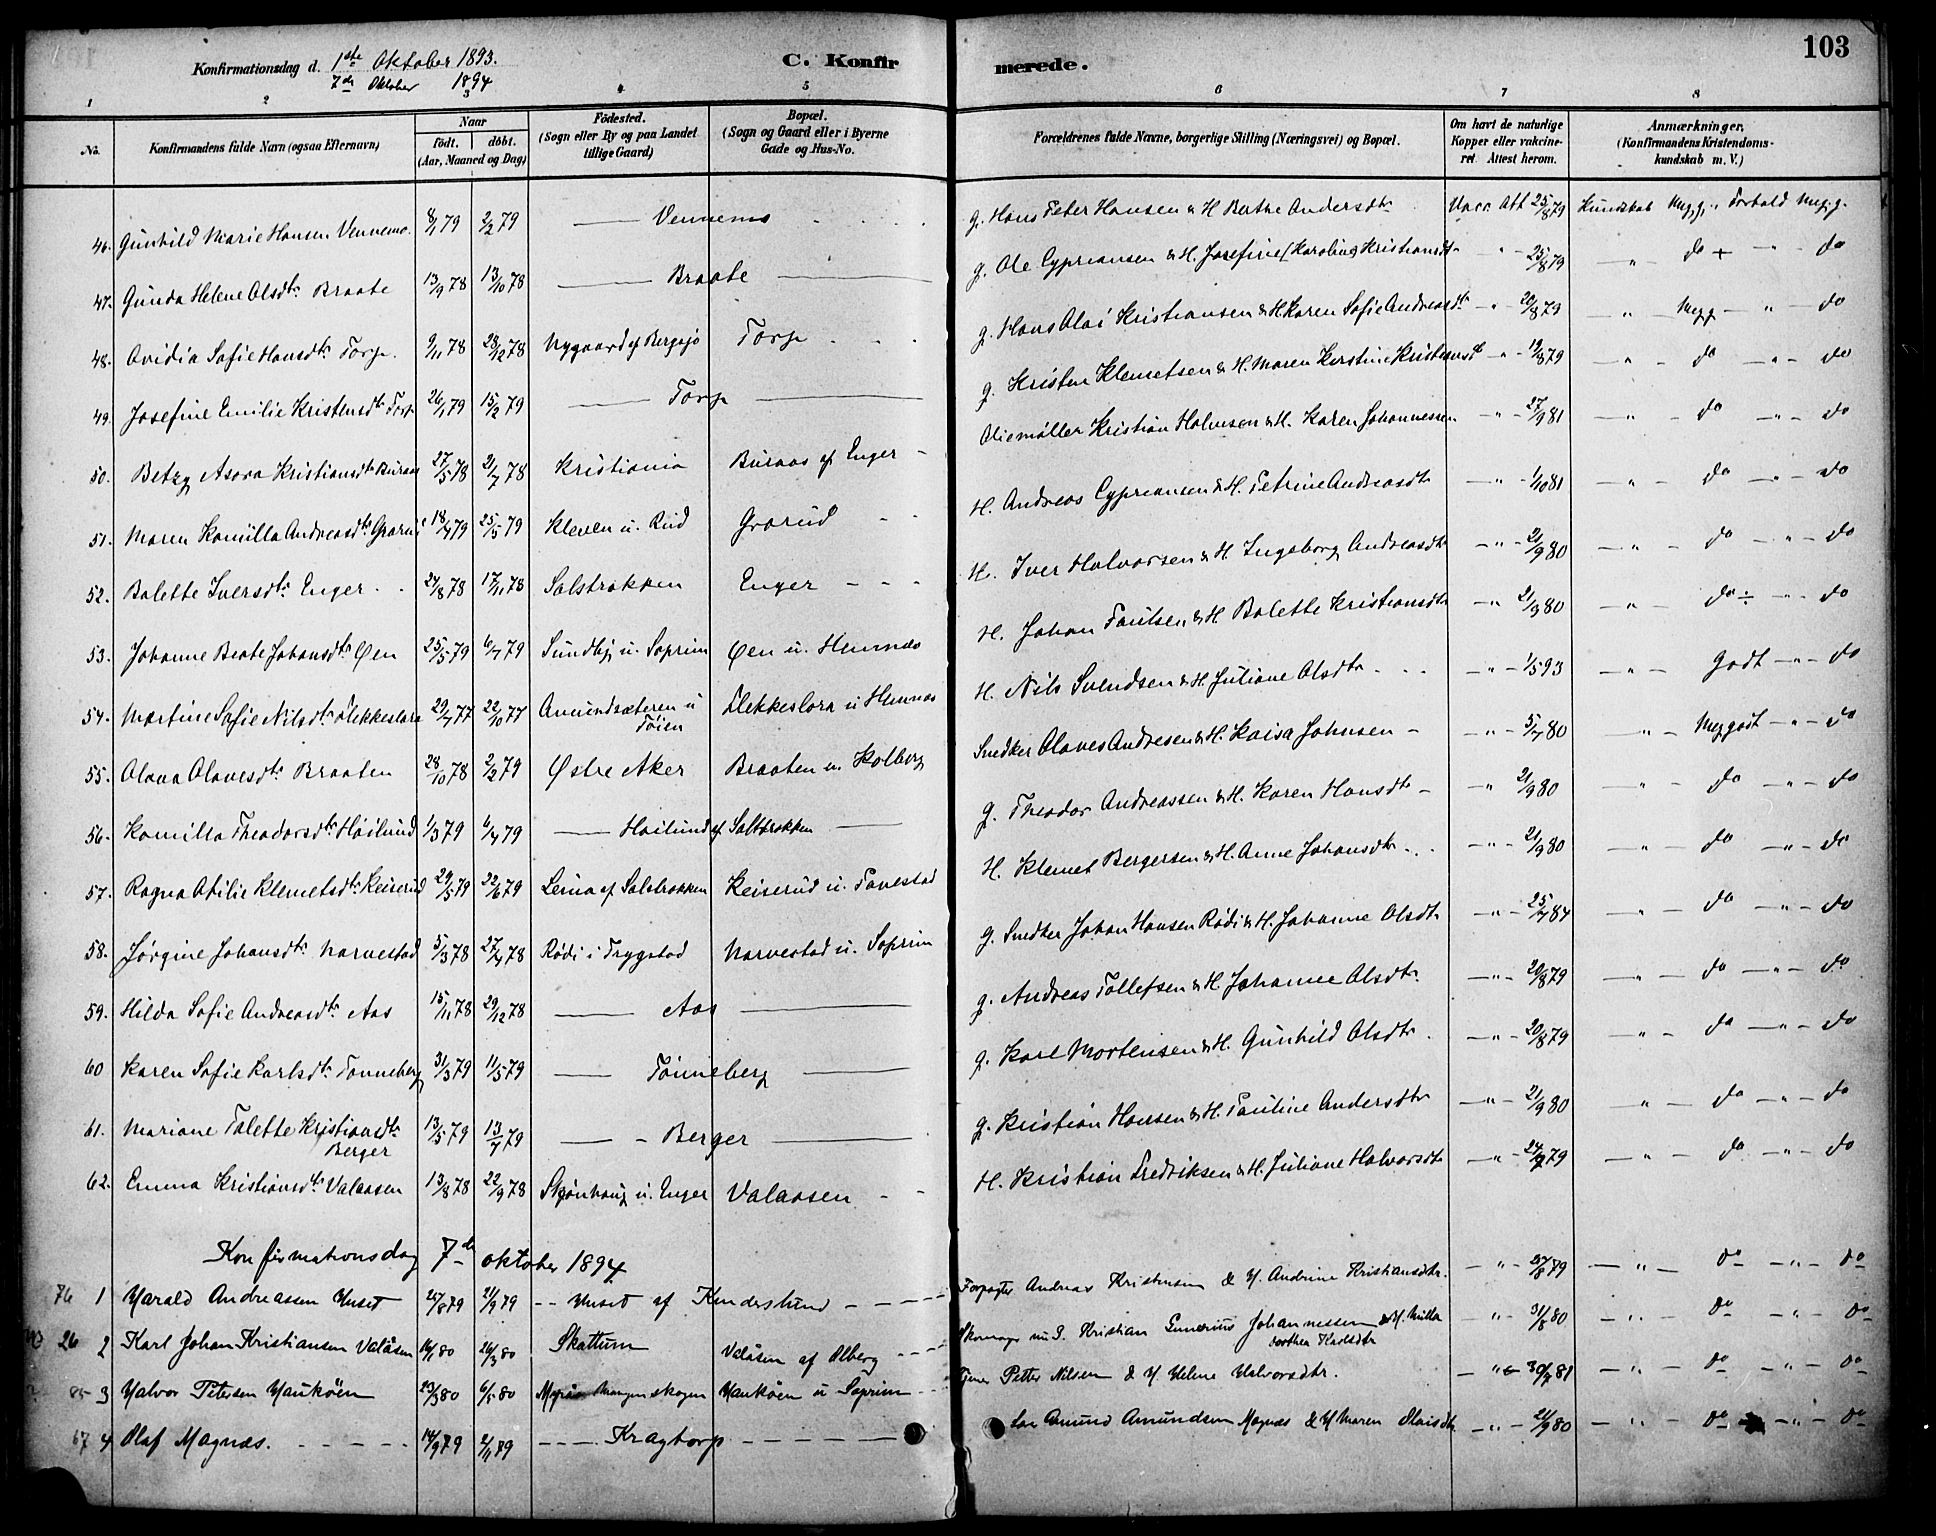 103
Konfirmationsdag d. 1ste Oktober 1893.
7de Oktober 1894
C. Konfirmerede.
1 2 3 4 5 6 7 8
No. Konfirmandens fulde Navn (ogsaa Efternavn) Naar födt. döbt. (Aar, Maaned og Dag) Födested. (Sogn eller By og paa Landet tillige Gaard) Bopæl. (Sogn og Gaard eller i Byerne Gade og Hus-No. Forældrenes fulde Navne, borgerlige Stilling (Næringsvei) og Bopæl. Om havt de naturlige Kopper eller vakcineret Attest herom. Anmærkninger. (Konfirmandens Kristendomskundskab m. V.)
46. Gunhild Marie Hansen Vennemo. 8/1 79 2/2 79 — Vennemo g. Hans Peter Hansen & H Berthe Andersdtr Vacc. Att 25/8 79 Kundskab Meg.g. Forhold Meg.g.
47. Gunda Helene Olsdtr Braate 13/9 78 13/10 78 — Braate — g. Ole Cypriansen & H. Josefine (Karoline) Kristiansdtr - " - 25/8 79 — " — do + - " - do
48. Ovidia Sofie Hansdtr Torp. 9/11 78 28/12 78 Nygaard af Bergsjø Torp g. Hans Olai Kristiansen & H Karen Sofie Andreasdtr - " - 20/8 79 — " — Megg - " - do
49. Josefine Emilie Kristensdtr Torp 26/1 79 15/2 79 — Torp — g. Kristen Klemetsen & H. Maren Kerstine Kristiansdtr - " - 19/8 79 — " — do - " - do
50. Betzy Asora Kristiansdtr Buraas 27/5 78 21/7 78 Kristiania Buraas af Enger - Oliemøller Kristian Halvorsen & H. Karen Johannessen - " - 27/9 81 — " — do - " - do
51. Maren Kamilla Andreasdtr Grarud 18/4 79 25/5 79 Kleven u. Rud Grarud - - H. Andreas Cypriansen & H. Petrine Andreasdtr - " - 1/10 81 — " — do - " - do
52. Bolette Iversdtr Enger 24/8 78 17/11 78 Salstrokken Enger - - - H. Iver Halvorsen & H. Ingeborg Andreasdtr - " - 21/9 80 — " — do - " - do
53. Johanne Beate Johansdtr Øen 25/5 79 6/7 79 Sundby u. Soprim Øen u. Hemnæs H. Johan Paulsen & H Bolette Kristiansdtr - " 21/9 80 — " — do ÷ - " - do
54. Martine Sofie Nilsdtr Flekkeslora 29/7 77 22/10 77 Amundsæteren u Töien Flekkeslora u Hemnæs H. Nils Svendsen & H. Juliane Olsdtr - " - 1/5 93 — " — Godt - " - do
55. Olava Olavesdtr Braaten 28/10 78 2/2 79 Østre Aker Braaten u. Kolberg Snedker Olaves Andresen & H. Kaisa Johnsen - - " - 5/7 80 " — Meggodt - " - do
56. Kamilla Theodorsdtr Höilund 1/3 79 6/4 79 — Höilund af Saltstrokken — g. Theodor Andreassen & H. Karen Hansdtr - - " 21/9 80 — " — do - " - do
57. Ragna Otilie Klemetsdtr Keiserud 29/5 79 22/6 79 Leina af Salstrokken Keiserud u. Tovestad H. Klemet Bergersen & H. Anne Johansdtr - " - 21/9 80 — " — do - " - do
58. Jørgine Johansdtr Narvestad 5/3 78 27/4 78 Rødi i Trygstad Narvestad u. Soprim g. Snedker Johan Hansen Rødi & H. Johanne Olsdtr - " - 25/7 84 — " — do - " - do
59. Hilda Sofie Andreasdtr Aas 15/11 78 29/12 78 — Aas — g. Andreas Tollefsen & H. Johanne Olsdtr. - " - 20/8 79 — " — do - " - do
60 Karen Sofie Karlsdtr Tönneberg 31/3 79 11/5 79 — Tönneberg — g. Karl Mortensen & H. Gunhild Olsdtr. - " - 20/8 79 " — do - " - do
61. Mariane Talette Kristiansdtr Berger 13/5 79 13/7 79 — - Berger — g. Kristian Hansen & H. Pauline Andersdtr - " - 21/9 80 " — do - " - do
62. Emma Kristiansdtr Valaasen 13/8 78 22/9 78 Skönhaug u. Enger Valaasen - - H. Kristian Fredriksen & H. Juliane Halvorsdtr - " - 24/9 79 — " — do - " - do
Konfirmationsdag 7de oktober 1894
76 1 Harald Andreassen Huset 25/8 79 21/9 79 -- Huset af Kinderslund - - - Forpagter Andreas Kristensen & H. Andrine Kristiansdtr. - " - 27/8 79 — " — do - " - do
26 2 Karl Johan Kristiansen Valåsen 16/1 80 26/3 80 Skattum Valåsen af Ölberg - - Skomager nu S. Kristian Gunerius Johannessen & H. Milla dorthea Karlsdtr - " 31/8 80 - " - do - " - do
85 3 Halvor Petersen Haukøen 23/3 80 6/5 80 Mangenskogen Haukøen u Soprim - Petter Nilsen & H. Helene Halvorsdtr. - " - 30/9 81 - " - do - " - do
67 4 Olaf Magnæs. - - - - 14/9 79 2/11 79 - - - Kragtorp - - - - - Amund Amundsen Magnæs & H Maren Olaisdtr - " - 21/9 80 - " - do - " - do